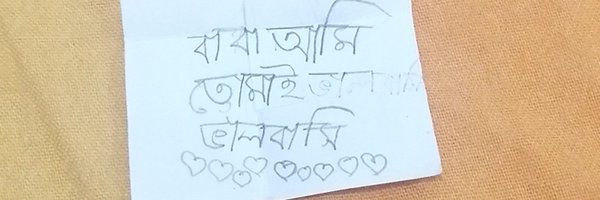 বাবা আমি
তোমাই ভালবামি
ভালবামি